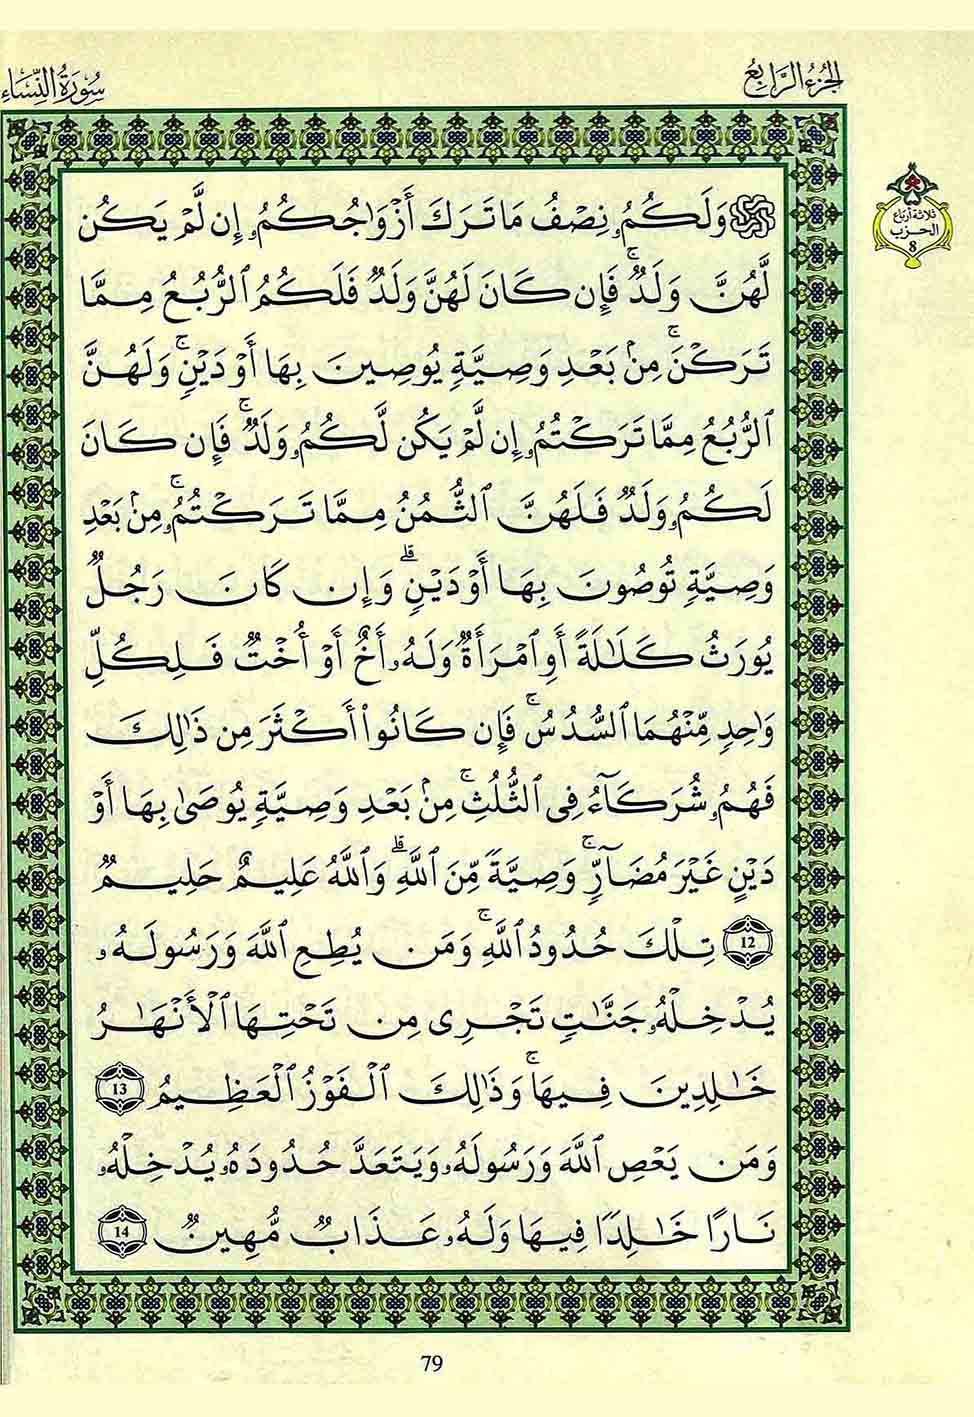 الجزء الرابع
سورة النساء
ثلاثة أرباع
الحزب
8
۞ وَلَكُمُۥ نِصۡفُ مَا تَرَكَ أَزۡوَٰجُكُمُۥٓ إِن لَّمۡ يَكُن
لَّهُنَّ وَلَدٞۚ فَإِن كَانَ لَهُنَّ وَلَدٞ فَلَكُمُ ٱلرُّبُعُ مِمَّا
تَرَكۡنَۚ مِنۢ بَعۡدِ وَصِيَّةٖ يُوصِينَ بِهَا أَوۡ دَيۡنٖۚ وَلَهُنَّ
ٱلرُّبُعُ مِمَّا تَرَكۡتُمُۥ إِن لَّمۡ يَكُن لَّكُمُۥ وَلَدٞۚ فَإِن كَانَ
لَكُمُۥ وَلَدٞ فَلَهُنَّ ٱلثُّمُنُ مِمَّا تَرَكۡتُمُۥۚ مِنۢ بَعۡدِ
وَصِيَّةٖ تُوصُونَ بِهَا أَوۡ دَيۡنٖۗ وَإِن كَانَ رَجُلٞ
يُورَثُ كَلَٰلَةً أَوِ ٱمۡرَأَةٞ وَلَهُۥ أَخٌ أَوۡ أُخۡتٞ فَلِكُلِّ
وَٰحِدٖ مِّنۡهُمَا ٱلسُّدُسُۚ فَإِن كَانُواْ أَكۡثَرَ مِن ذَٰلِكَ
فَهُمُۥ شُرَكَآءُ فِي ٱلثُّلُثِۚ مِنۢ بَعۡدِ وَصِيَّةٖ يُوصَىٰ بِهَا أَوۡ
دَيۡنٍ غَيۡرَ مُضَآرّٖۚ وَصِيَّةٗ مِّنَ ٱللَّهِۗ وَٱللَّهُ عَلِيمٌ حَلِيمٞ
12 تِلۡكَ حُدُودُ ٱللَّهِۚ وَمَن يُطِعِ ٱللَّهَ وَرَسُولَهُۥ
يُدۡخِلۡهُۥ جَنَّٰتٖ تَجۡرِي مِن تَحۡتِهَا ٱلۡأَنۡهَٰرُ
خَٰلِدِينَ فِيهَاۚ وَذَٰلِكَ ٱلۡفَوۡزُ ٱلۡعَظِيمُ 13
وَمَن يَعۡصِ ٱللَّهَ وَرَسُولَهُۥ وَيَتَعَدَّ حُدُودَهُۥ يُدۡخِلۡهُۥ
نَارًا خَٰلِدٗا فِيهَا وَلَهُۥ عَذَابٞ مُّهِينٞ 14
79